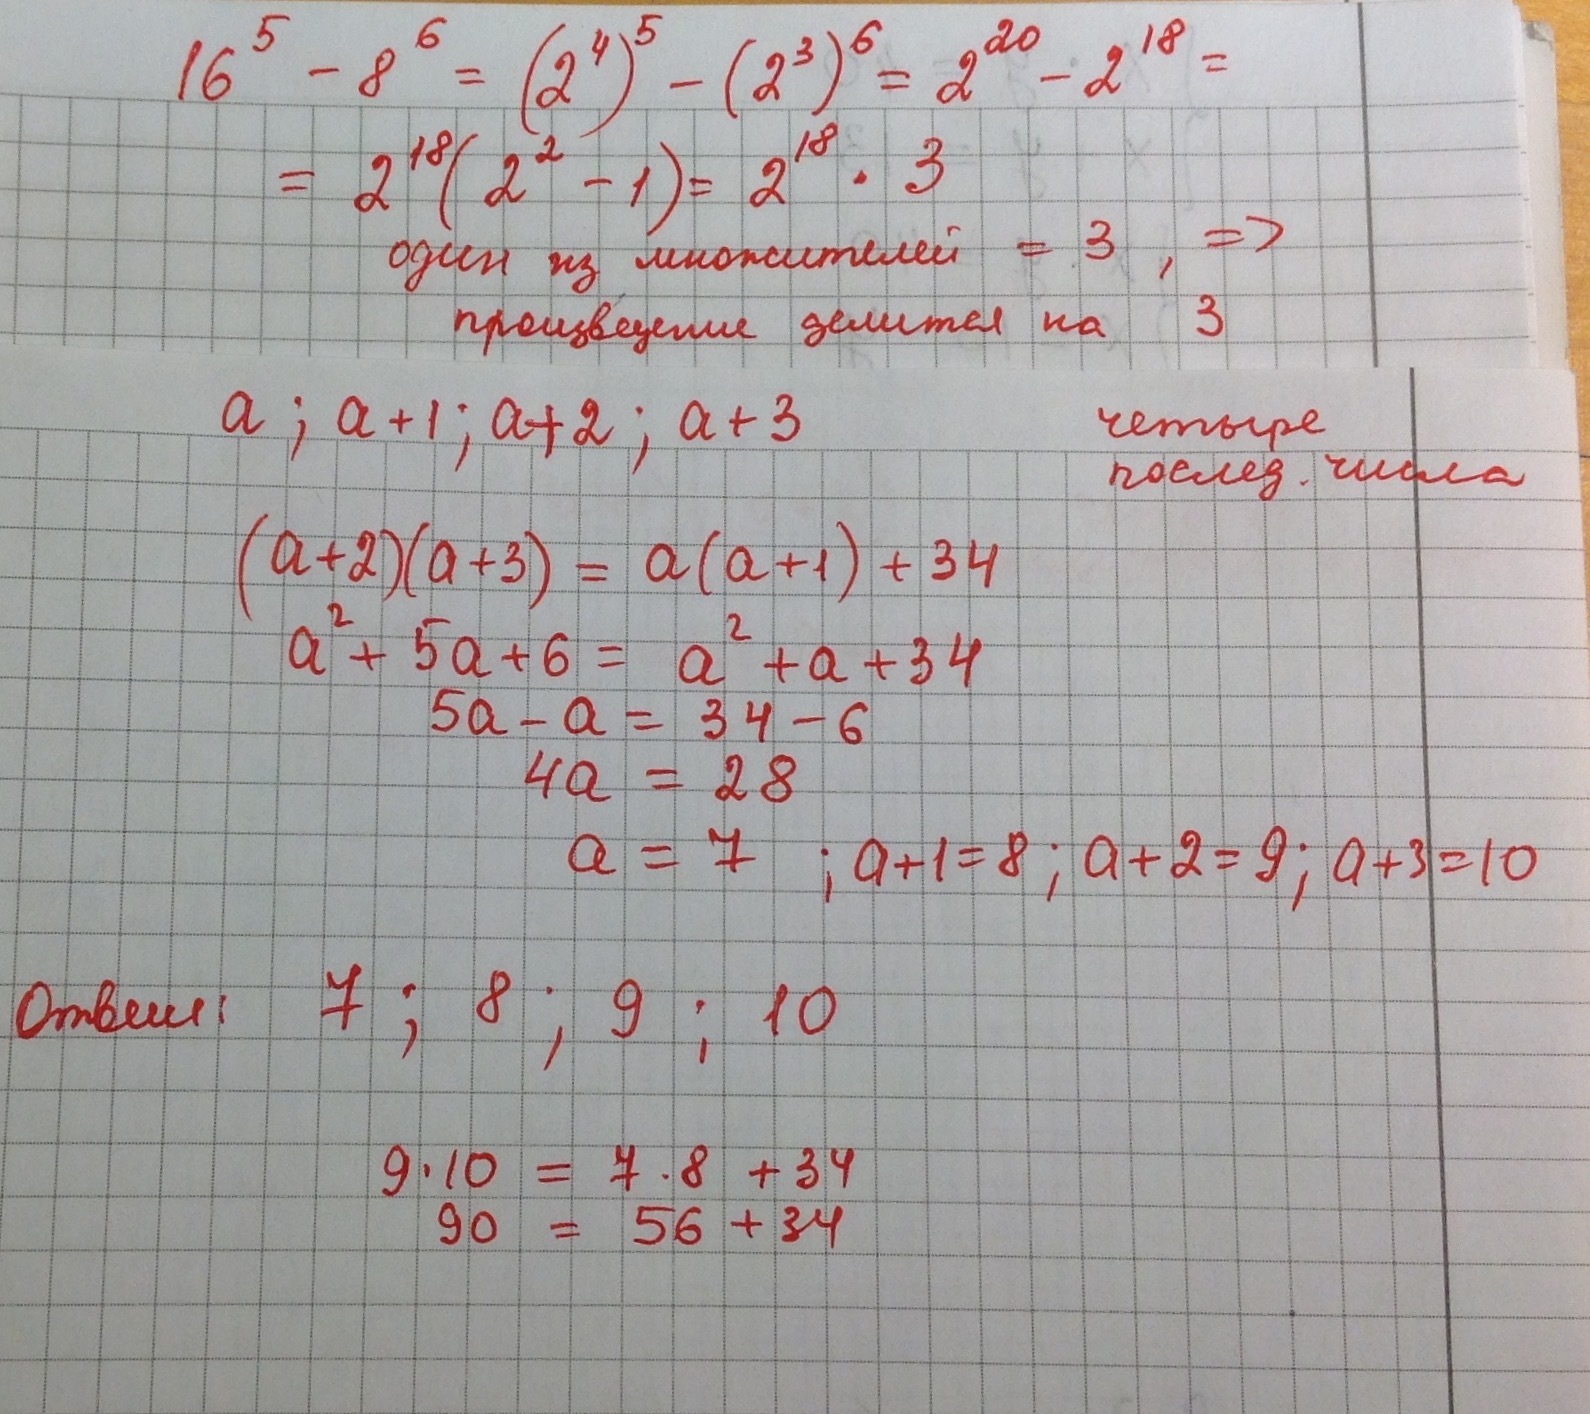 16⁵ - 8⁶ = (2⁴)⁵ - (2³)⁶ = 2²⁰ - 2¹⁸ =
= 2¹⁸(2² - 1) = 2¹⁸ · 3
один из множителей = 3, =>
произведение делится на 3
a; a+1; a+2; a+3 четыре
послед. числа
(a+2)(a+3) = a(a+1) + 34
a² + 5a + 6 = a² + a + 34
5a - a = 34 - 6
4a = 28
a = 7 ; a+1=8; a+2=9; a+3=10
Ответ: 7; 8; 9; 10
9·10 = 7·8 + 34
90 = 56 + 34